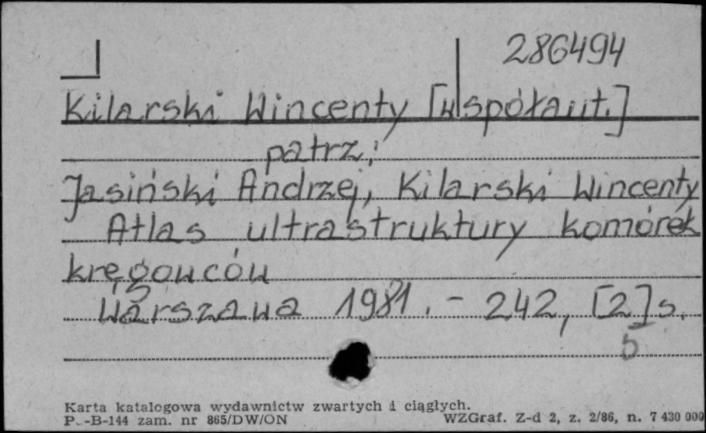 286494
Kilarski Wincenty [współaut.]
patrz:
Jasiński Andrzej, Kilarski Wincenty
Atlas ultrastruktury komórek
kręgowców
Warszawa 1981. - 242, [2] s.
5
Karta katalogowa wydawnictw zwartych i ciągłych.
P.-B-144 zam. nr 865/DW/ON WZGraf. Z-d 2, z. 2/86, n. 7 430 000